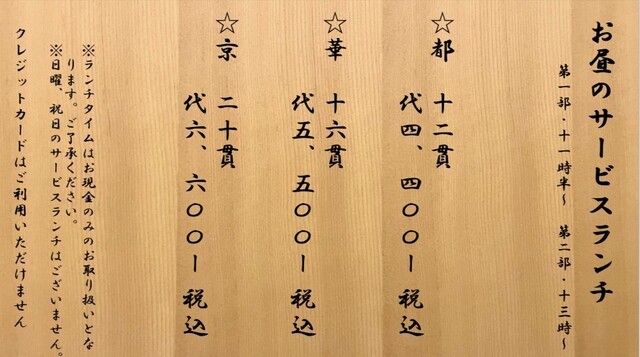 お昼のサービスランチ
第一部・十一時半〜　第二部・十三時〜
☆都　十二貫
代四、四〇〇ー税込
☆華　十六貫
代五、五〇〇ー税込
☆京　二十貫
代六、六〇〇ー税込
※ランチタイムはお現金のみのお取り扱いとな
ります。ご了承ください。
※日曜、祝日のサービスランチはございません。
クレジットカードはご利用いただけません